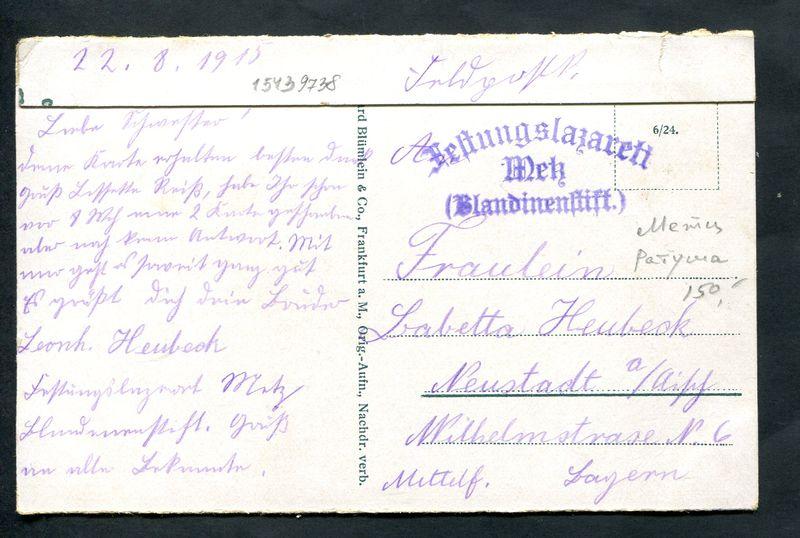 22. 8. 1915
15439738
Feldpostk.
Liebe Schwester!
deine Karte erhalten besten Dank
Gruß Lissette Reiß, habe Ihr schon
vor 8 Wch eine 2 Karte geschrieben
aber noch keine Antwort. Mit
mir geht es soweit ganz gut
Es grüßt dich dein Bruder
Leonh. Heubeck
Festungslazarett Metz
Blandinenstift. Gruß
an alle Bekannte.
rd Blümlein & Co., Frankfurt a. M., Orig.-Aufn., Nachdr. verb.
A
Festungslazarett
Metz
(Blandinenstift.)
6/24.
Метц
Ратуша
150,-
Fraulein
Babetta Heubeck
Neustadt a/Aisch
Wilhelmstrase N. 6
Mittelf. Bayern